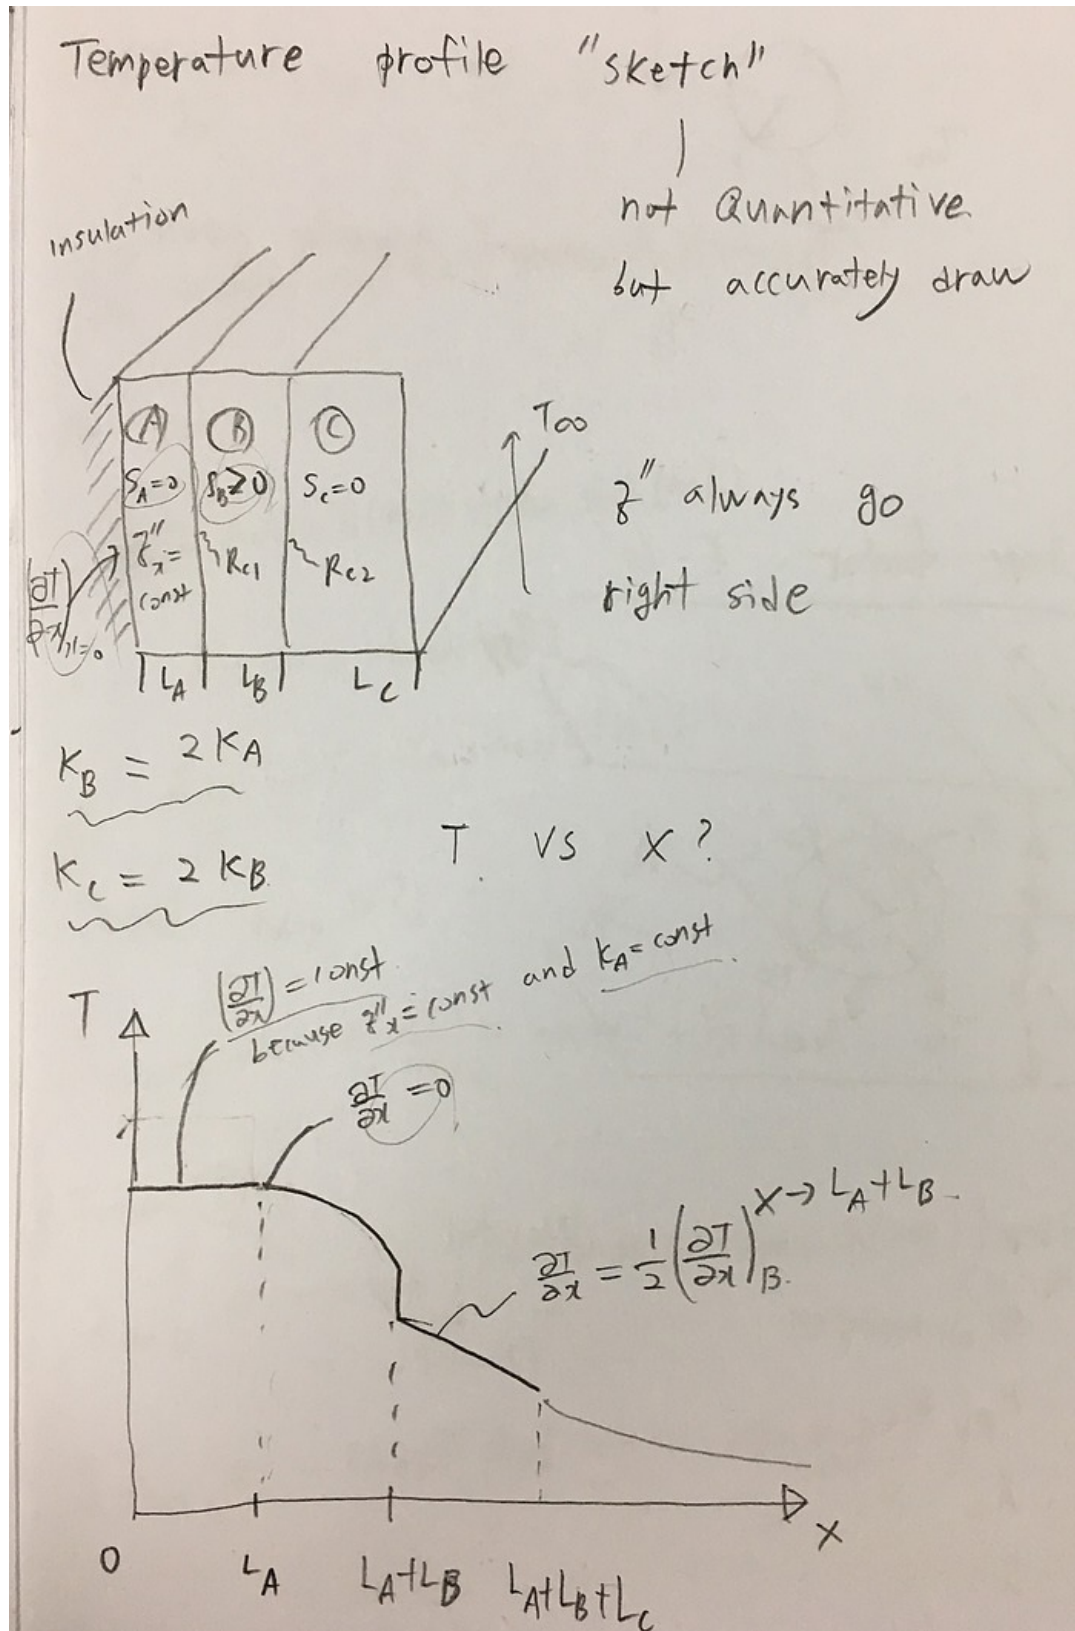 Temperature profile "sketch"
not Quantitative
but accurately draw
insulation
A B C
S_A=0 S_B≥0 S_C=0
q''_x = const
R_C1 R_C2
T∞
(∂T/∂x)_x=0
q'' always go
right side
L_A L_B L_C
K_B = 2K_A
K_C = 2K_B
T vs x?
(∂T/∂x) = const
because q''_x = const and K_A = const
T
∂T/∂x = 0
x→L_A+L_B
∂T/∂x = 1/2 (∂T/∂x)_B
x
0 L_A L_A+L_B L_A+L_B+L_C